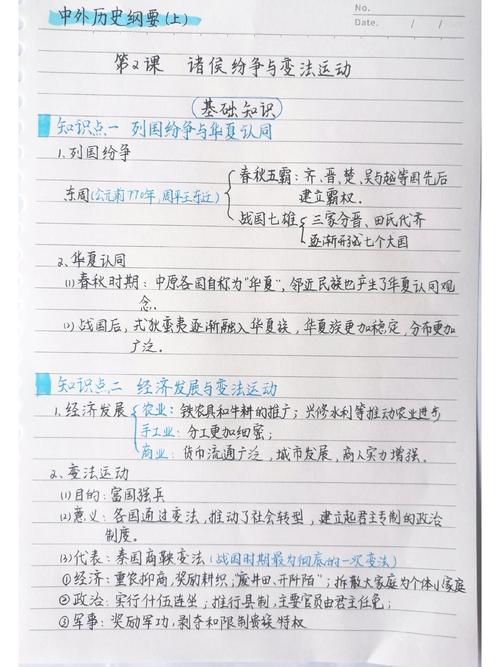 中外历史纲要(上)
No.
Date. / /
第2课 诸侯纷争与变法运动
基础知识
知识点一 列国纷争与华夏认同
1.列国纷争
东周(公元前770年,周平王东迁)
春秋五霸:齐、晋、楚、吴与越等国先后
建立霸权.
战国七雄
三家分晋、田氏代齐
逐渐形成七个大国
2、华夏认同
(1)春秋时期:中原各国自称为"华夏",邻近民族也产生了华夏认同观
念.
(2)战国后,戎狄蛮夷逐渐融入华夏族,华夏族更加稳定,分布更加
广泛。
知识点二 经济发展与变法运动
1.经济发展
农业:铁农具和牛耕的推广;兴修水利等推动农业进步
手工业:分工更加细密;
商业:货币流通广泛,城市发展,商人实力增强。
2、变法运动
(1)目的:富国强兵
(2)意义:各国通过变法,推动了社会转型,建立起君主专制的政治
制度。
(3)代表:秦国商鞅变法(战国时期最为彻底的一次变法)
①经济:重农抑商,奖励耕织,"废井田、开阡陌";拆散大家庭为个体小家庭
②政治:实行什伍连坐;推行县制,主要官员由君主任免;
③军事:奖励军功,剥夺和限制贵族特权